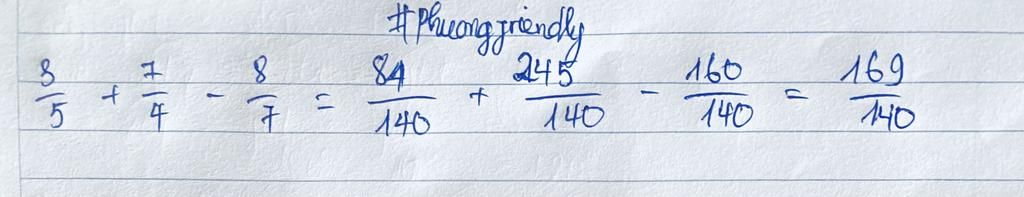 #Phuongfriendly
3/5 + 7/4 - 8/7 = 84/140 + 245/140 - 160/140 = 169/140